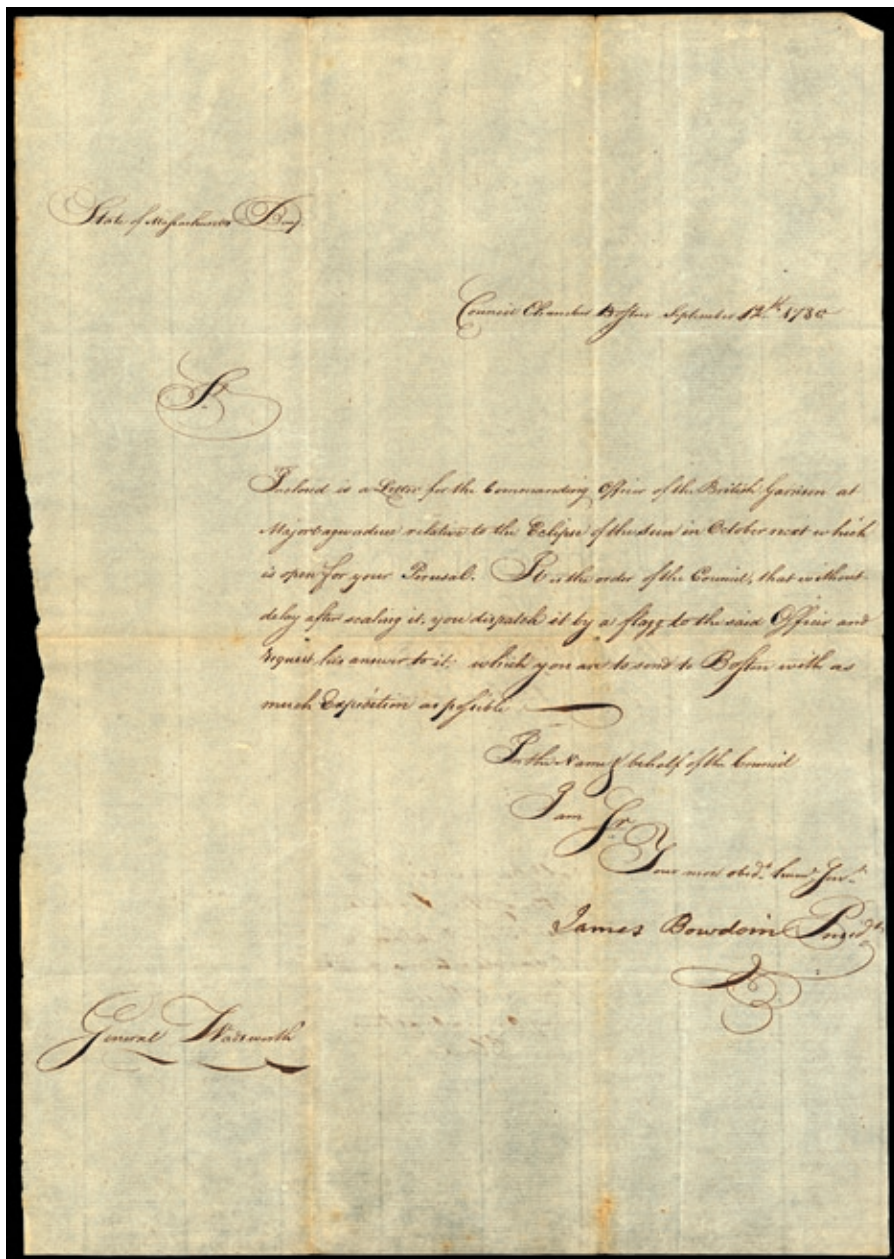 State of Massachusetts Bay.
Council Chamber Boston September 12.th 1780
Sr.
Inclosd is a Letter for the Commanding Officer of the British Garrison at
Majorbagwaduce relative to the Eclipse of the Sun in October next which
is open for your Perusal. It is the order of the Council, that without
delay after sealing it, you dispatch it by a flagg to the said Officer and
request his answer to it: which you are to send to Boston with as
much Expedition as possible
In the Name & behalf of the Council
I am Sr.
Your most obedt. humel. Servt.
James Bowdoin Presidt.
General Wadsworth